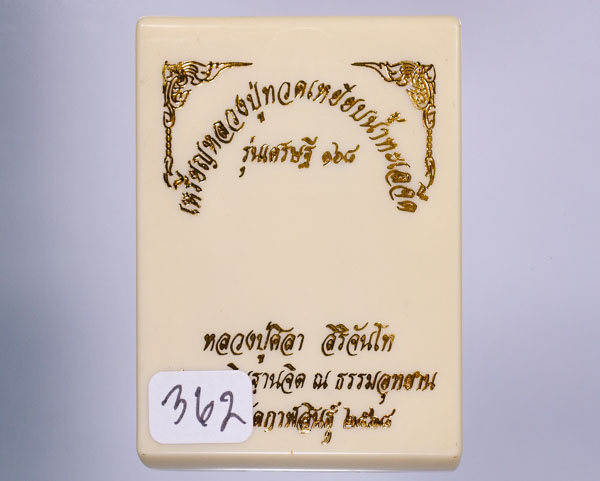 เหรียญหลวงปู่ทวดเหยียบน้ำทะเลจืด
รุ่นเศรษฐี ๑๖๘
หลวงปู่ศิลา สิริจันโท
ษฐานจิต ณ ธรรมอุทยาน
ดกาฬสินธุ์ ๒๕๖๘
362